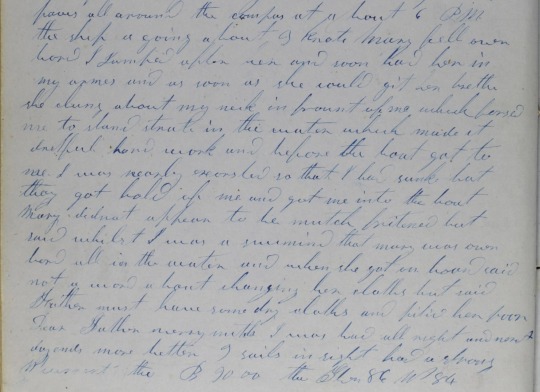 pavis all around the compas at a bout 6 P.M
the ship a going a bout 3 knots Mary fell over
bord I Jumped after her and soon had her in
my armes and as soon as she could git her breth
she clung about my neck in frount of me which forsed
me to stand strate in the water which made it
dredfull hard work and before the boat got to
me I was nearly exorsted so that I had sunk but
they got hold of me and got me into the boat
Mary didnot appear to be mutch fritened but
said whilst I was a swimind that mary was over
bord all in the water and when she got on board said
not a word about changing her cloths but said
Father must have some dry cloths and pitied her poor
Dear Father verry mutch I was bad all night and
days more better 2 sails in sight had a strong
the B 30.00 the Ther 86 W 84